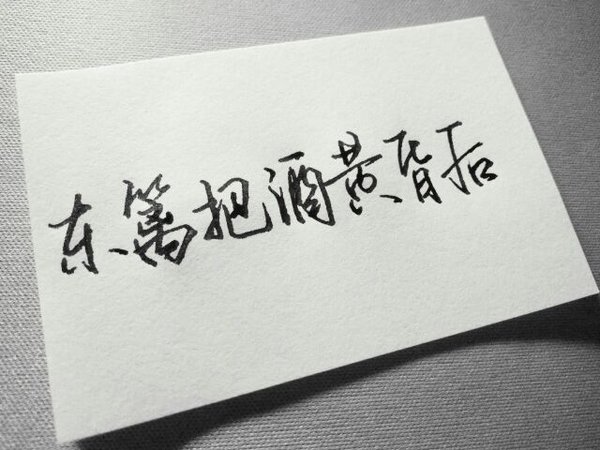 东篱把酒黄昏后